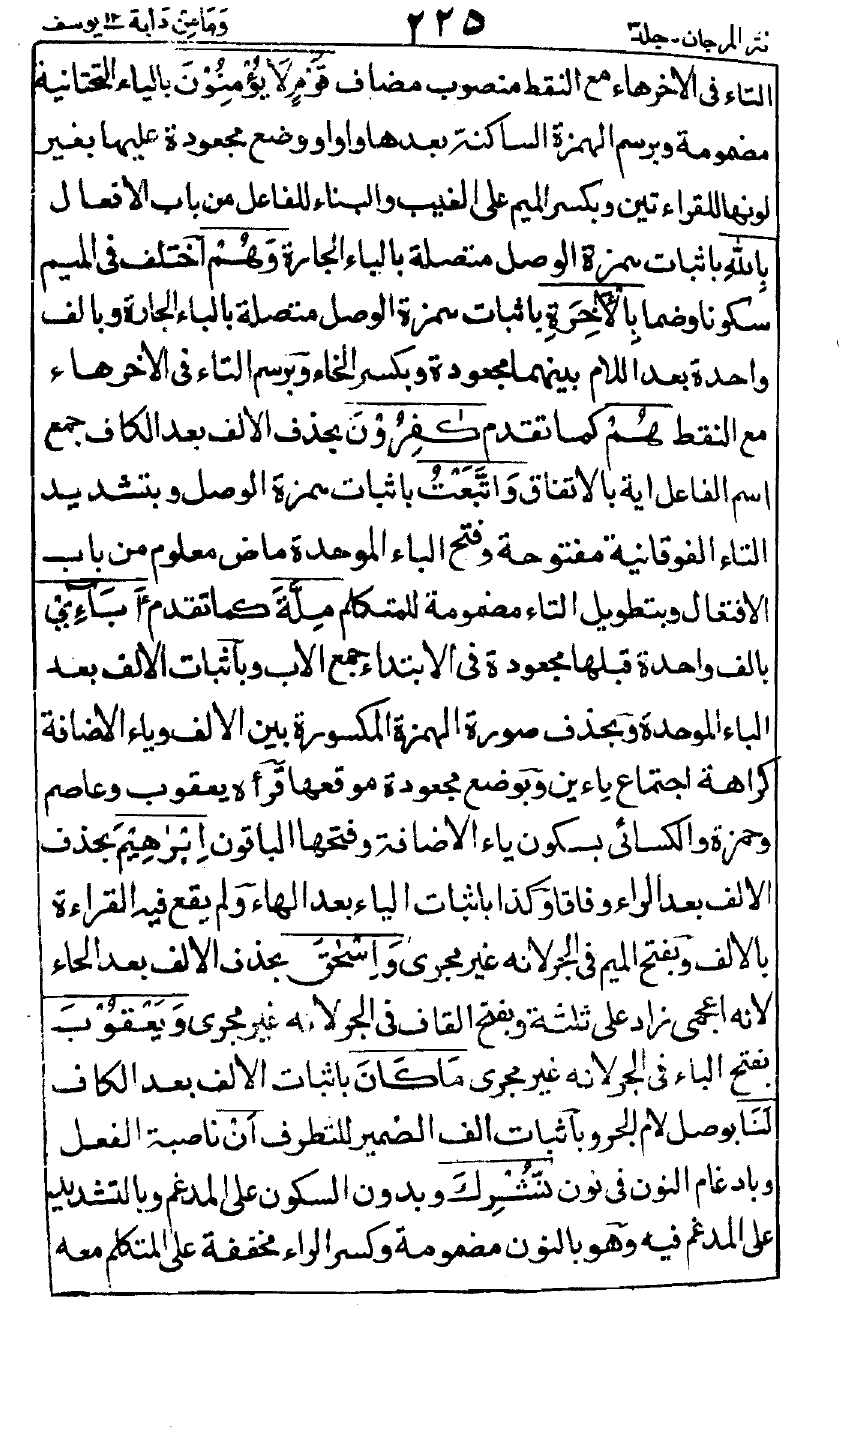 نثر المرجان - جلد ٣ ٢٢٥ وَمَا مِنْ دَابَّة ١٢ يوسف
التاء فى الآخر هاء مع النقط منصوب مضاف قَوْمٍ لَا يُؤْمِنُوْنَ بالياء التحتانية
مضمومة وبرسم الهمزة الساكنة بعدها واوا ووضع مجعودة عليها بغير
لونها للقراءتين وبكسر الميم على الغيب والبناء للفاعل من باب الافعال
بِاللهِ باثبات همزة الوصل متصلة بالباء الجارة وَهُمْ اختلف فى الميم
سكونا وضما بِالْاٰخِرَةِ باثبات همزة الوصل متصلة بالباء الجارة وبالف
واحدة بعد اللام بينهما مجعودة وبكسر الخاء وبرسم التاء فى الآخر هاء
مع النقط هُمْ كما تقدم كٰفِرُوْنَ بحذف الالف بعد الكاف جمع
اسم الفاعل اية بالاتفاق وَاتَّبَعْتُ باثبات همزة الوصل وبتشديد
التاء الفوقانية مفتوحة وفتح الباء الموحدة ماض معلوم من باب
الافتعال وبتطويل التاء مضمومة للمتكلم مِلَّةَ كما تقدم اٰبَآءِيْ
بالف واحدة قبلها مجعودة فى الابتداء جمع الاب وباثبات الالف بعد
الباء الموحدة وبحذف صورة الهمزة المكسورة بين الالف وياء الاضافة
كراهة اجتماع ياءين وبوضع مجعودة موقعها قرأه يعقوب وعاصم
وحمزة والكسائى بسكون ياء الاضافة وفتحها الباقون اِبْرٰهِيْمَ بحذف
الالف بعد الراء وفاقا وكذا باثبات الياء بعد الهاء ولم يقع فيه القراءة
بالالف وبفتح الميم فى الجر لانه غير مجرى وَاِسْحٰقَ بحذف الالف بعد الحاء
لانه اعجمى زاد على ثلثة وبفتح القاف فى الجر لانه غير مجرى وَيَعْقُوْبَ
بفتح الباء فى الجر لانه غير مجرى مَاكَانَ باثبات الالف بعد الكاف
لَنَا بوصل لام الجر وباثبات الف الضمير للتطرف اَنْ ناصبة الفعل
وبادغام النون فى نون نُّشْرِكَ وبدون السكون على المدغم وبالتشديد
على المدغم فيه وهو بالنون مضمومة وكسر الراء مخففة على المتكلم معه